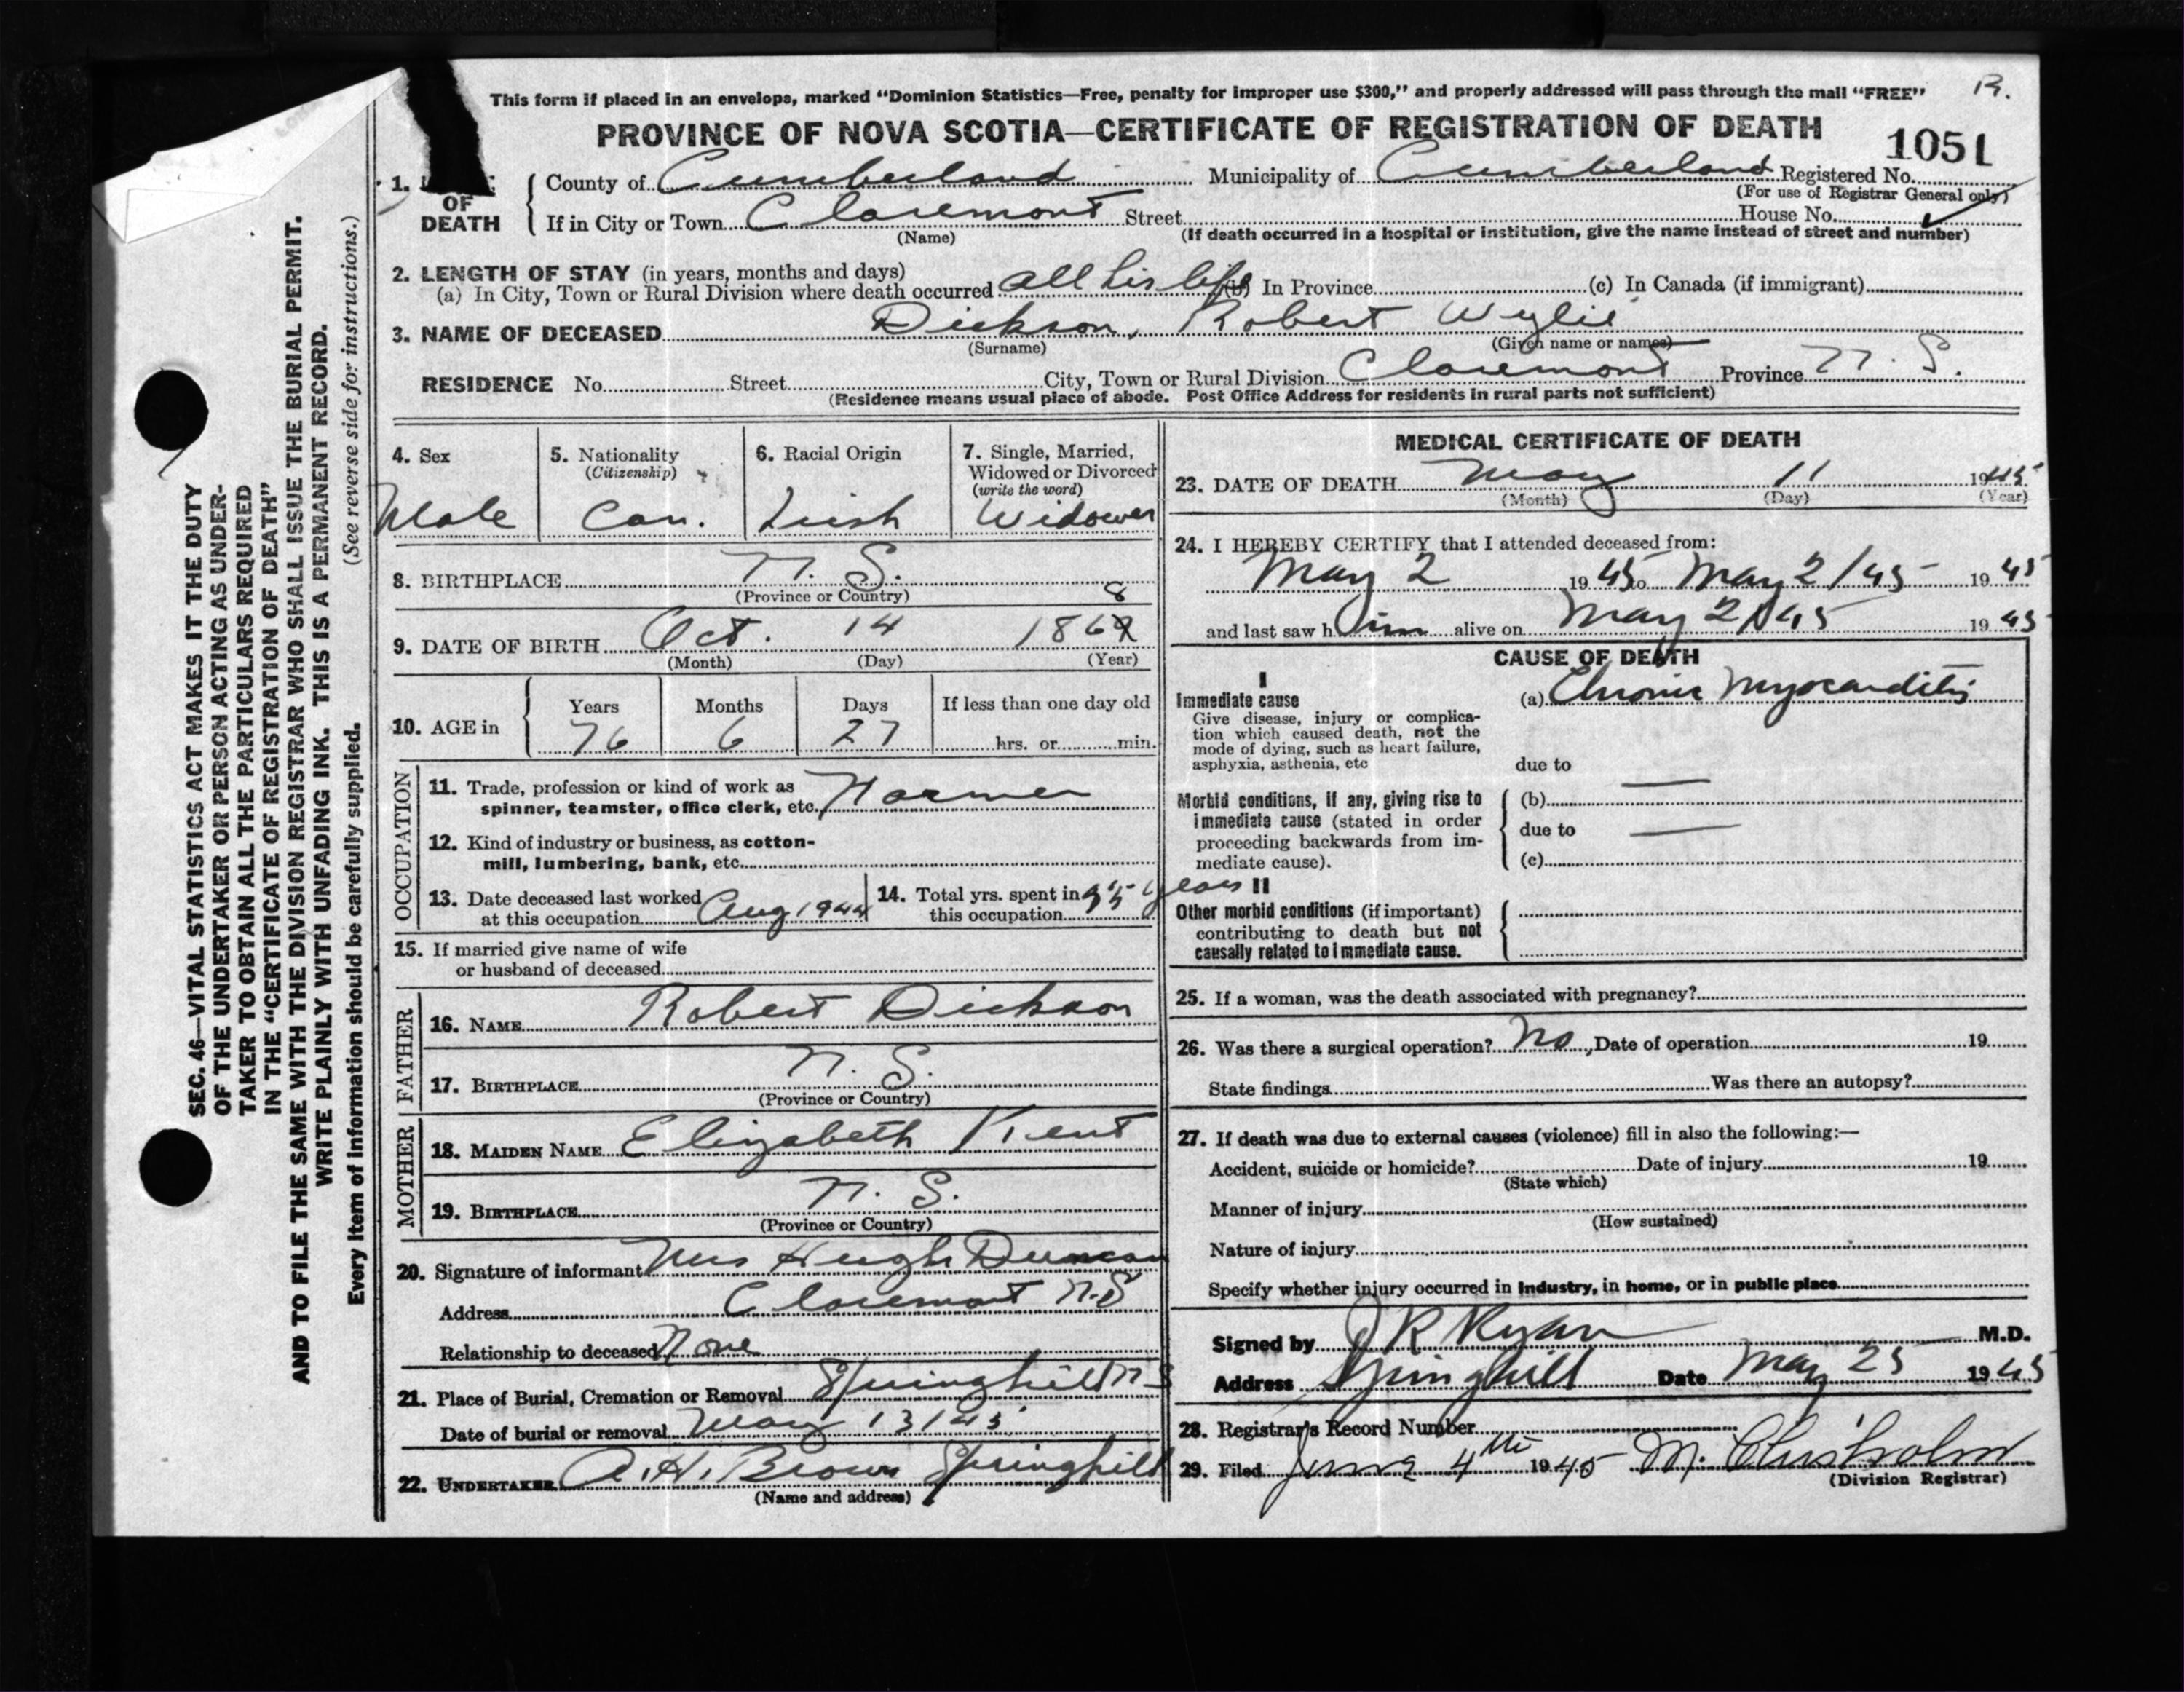 This form if placed in an envelope, marked "Dominion Statistics—Free, penalty for improper use $300," and properly addressed will pass through the mail "FREE"
PROVINCE OF NOVA SCOTIA—CERTIFICATE OF REGISTRATION OF DEATH
1051
1. OF DEATH
County of Cumberland Municipality of Cumberland Registered No.
(For use of Registrar General only)
If in City or Town Claremont Street House No.
(Name) (If death occurred in a hospital or institution, give the name instead of street and number)
2. LENGTH OF STAY (in years, months and days)
(a) In City, Town or Rural Division where death occurred all his life (b) In Province (c) In Canada (if immigrant)
3. NAME OF DECEASED Dickson, Robert Wylie
(Surname) (Given name or names)
RESIDENCE No. Street City, Town or Rural Division Claremont Province N. S.
(Residence means usual place of abode. Post Office Address for residents in rural parts not sufficient)
4. Sex
Male
5. Nationality
(Citizenship)
Can.
6. Racial Origin
Irish
7. Single, Married,
Widowed or Divorced
(write the word)
Widower
8. BIRTHPLACE N. S.
(Province or Country)
8
9. DATE OF BIRTH Oct. 14 1869
(Month) (Day) (Year)
10. AGE in
Years Months Days If less than one day old
76 6 27 hrs. or min.
OCCUPATION
11. Trade, profession or kind of work as
spinner, teamster, office clerk, etc. Farmer
12. Kind of industry or business, as cotton-
mill, lumbering, bank, etc.
13. Date deceased last worked
at this occupation Aug 1944
14. Total yrs. spent in
this occupation years
15. If married give name of wife
or husband of deceased
FATHER
16. NAME Robert Dickson
17. BIRTHPLACE N. S.
(Province or Country)
MOTHER
18. MAIDEN NAME Elizabeth Kent
19. BIRTHPLACE N. S.
(Province or Country)
20. Signature of informant Mrs Hugh Duncan
Address Claremont N.S
Relationship to deceased None
21. Place of Burial, Cremation or Removal Springhill N S
Date of burial or removal May 13/45
22. UNDERTAKER A. H. Brown Springhill
(Name and address)
MEDICAL CERTIFICATE OF DEATH
23. DATE OF DEATH May 11 1945
(Month) (Day) (Year)
24. I HEREBY CERTIFY that I attended deceased from:
May 2 1945 to May 2/45 1945
and last saw him alive on May 2/45 1945
CAUSE OF DEATH
I
Immediate cause
Give disease, injury or complica-
tion which caused death, not the
mode of dying, such as heart failure,
asphyxia, asthenia, etc
(a) Chronic Myocarditis
due to —
Morbid conditions, if any, giving rise to
immediate cause (stated in order
proceeding backwards from im-
mediate cause).
(b)
due to —
(c)
II
Other morbid conditions (if important)
contributing to death but not
causally related to immediate cause.
25. If a woman, was the death associated with pregnancy?
26. Was there a surgical operation? No, Date of operation 19
State findings Was there an autopsy?
27. If death was due to external causes (violence) fill in also the following:—
Accident, suicide or homicide? Date of injury 19
(State which)
Manner of injury
(How sustained)
Nature of injury
Specify whether injury occurred in industry, in home, or in public place
Signed by J R Ryan M.D.
Address Springhill Date May 25 1945
28. Registrar's Record Number
29. Filed June 4th 1945 M. Chisholm
(Division Registrar)
SEC. 46—VITAL STATISTICS ACT MAKES IT THE DUTY
OF THE UNDERTAKER OR PERSON ACTING AS UNDER-
TAKER TO OBTAIN ALL THE PARTICULARS REQUIRED
IN THE "CERTIFICATE OF REGISTRATION OF DEATH"
AND TO FILE THE SAME WITH THE DIVISION REGISTRAR WHO SHALL ISSUE THE BURIAL PERMIT.
WRITE PLAINLY WITH UNFADING INK. THIS IS A PERMANENT RECORD.
(See reverse side for instructions.)
Every item of information should be carefully supplied.